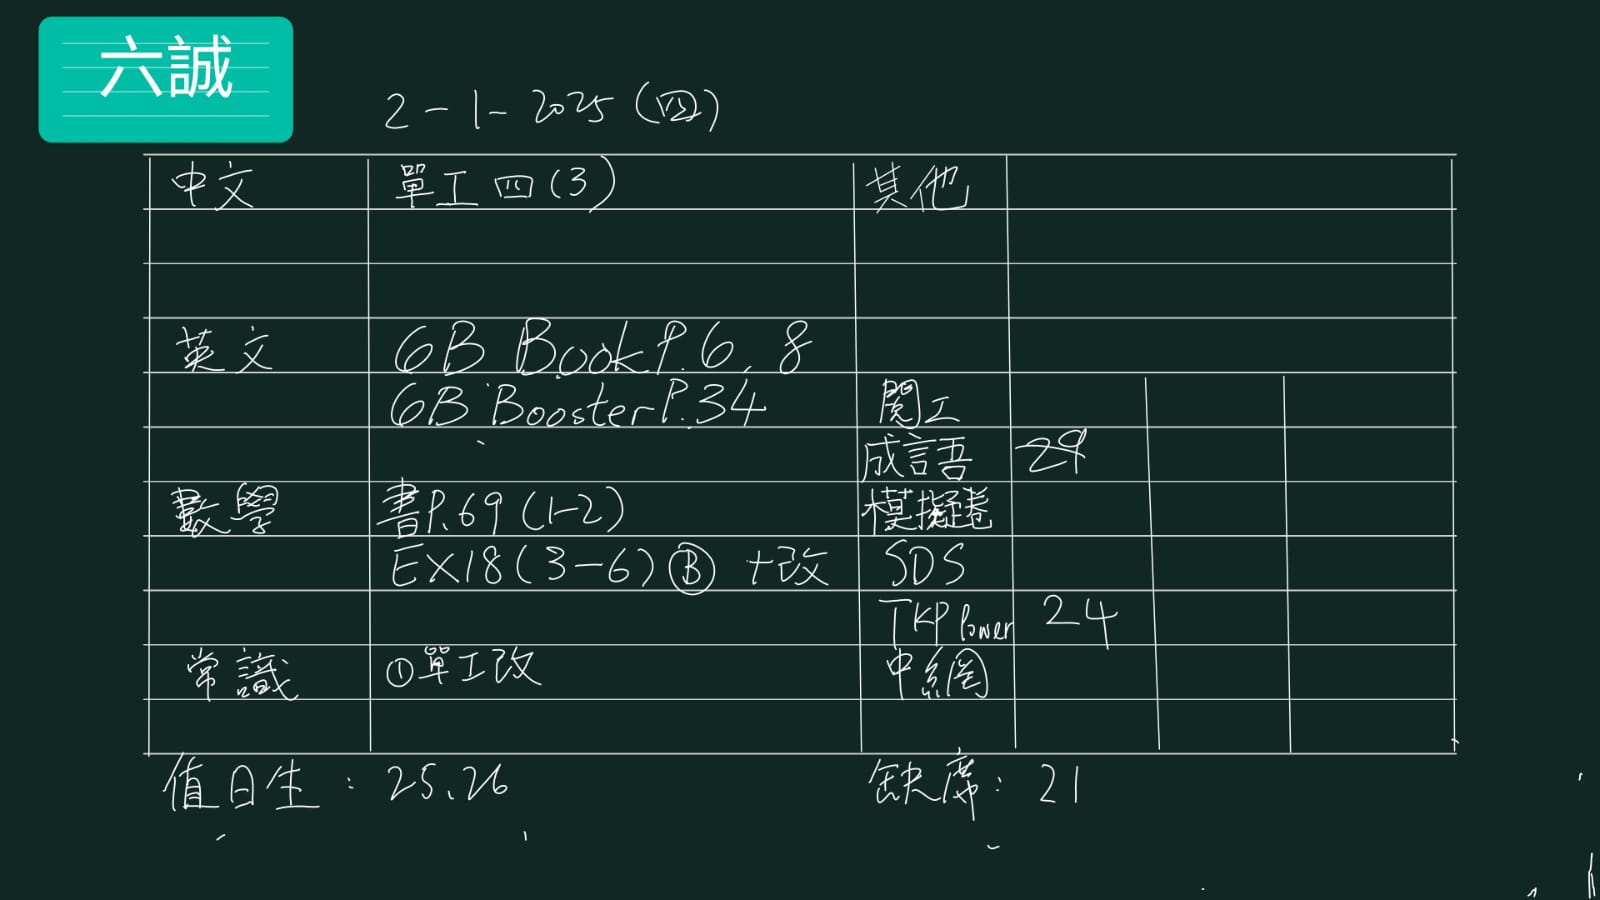 六誠
2-1-2025(四)
中文 單工四(3) 其他
英文 6B Book P.6, 8
6B Booster P.34 閱工
成語 29
數學 書P.69(1-2) 模擬卷
EX18(3-6)Ⓑ +改 SDS
TKP Power 24
常識 ①單工改 中網
值日生:25、26 缺席:21